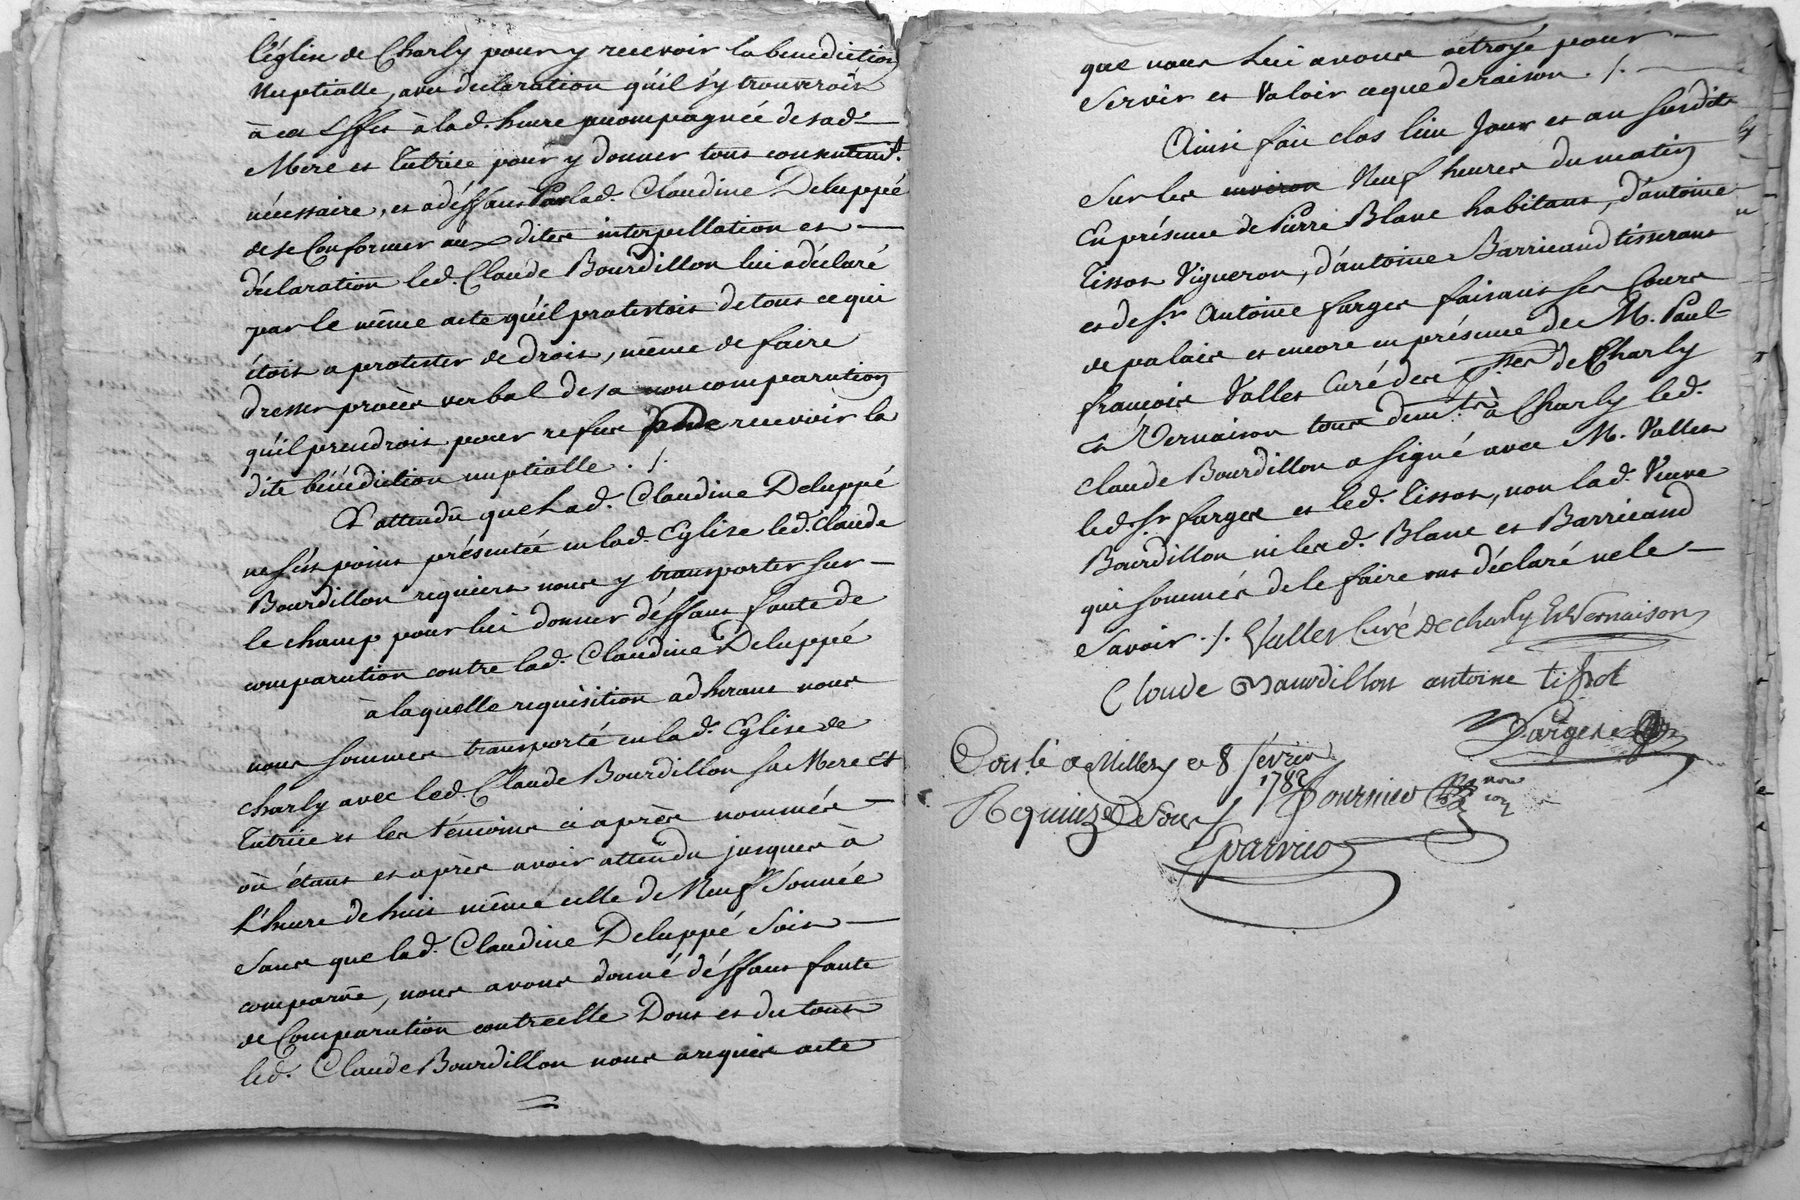 l'églize de Charly pour y recevoir la bénédiction
Nuptialle, avec déclaration qu'il s'y trouveroit
à cet Effet à lad. heure accompagnée de sad.
Mère et Tutrice pour y donner tous consentemt.
nécessaire, et a déffaut Par lad. Claudine Deluppé
de se Conformer aux dites interpellation et
déclaration led. Claude Bourdillon lui a déclaré
par le même acte qu'il protestoit de tous ce qui
étoit a protester de droit, même de faire
dresser procès verbal de sa non comparution
qu'il prendroit pour refus de recevoir la
dite bénédiction nuptialle ./.
Et attendu que Lad. Claudine Deluppé
ne s'est point présentée en lad. Eglise led. Claude
Bourdillon requiert nous y transporter sur
le champ pour lui donner déffaut faute de
comparution contre lad. Claudine Deluppé
à laquelle requisition adhérant nous
nous sommes transporté en lad. Eglise de
Charly avec led. Claude Bourdillon sa Mere Et
Tutrice et les témoins ci après nommés
où étant et après avoir attendu jusques à
l'heure de huit même celle de Neuf Sonnée
sans que lad. Claudine Deluppé soit
comparüe, nous avons donné déffaut faute
de Comparution contre elle Dont et du tout
led. Claude Bourdillon nous a requis acte
que nous Lui avons octroyé pour
servir et Valoir ce que de raison ./.
Ainsi fait clos lieu Jour et an susdits
sur les environ Neuf heures du matin
En présence de Pierre Blanc habitant, d'antoine
Tissot Vigneron, d'antoine Barricaud tisserant
et de Sr. Antoine farges faisant ses Cours
de palais et encore en présence de M. Paul
françois Valles Curé des psses de Charly
et Vernaison tous demts à Charly led.
Claude Bourdillon a signé avec M. Valles
led. Sr. farges et led. Tissot, non lad. Veuve
Bourdillon ni lesd. Blanc et Barricaud
qui sommés de le faire ont déclaré ne le
savoir ./. Valles Curé de charly Et Vernaison
Claude Baurdillon antoine tissot
Farges
Conlé a Millery le 8 février
1782 Fournier
Reçu quinze Sous